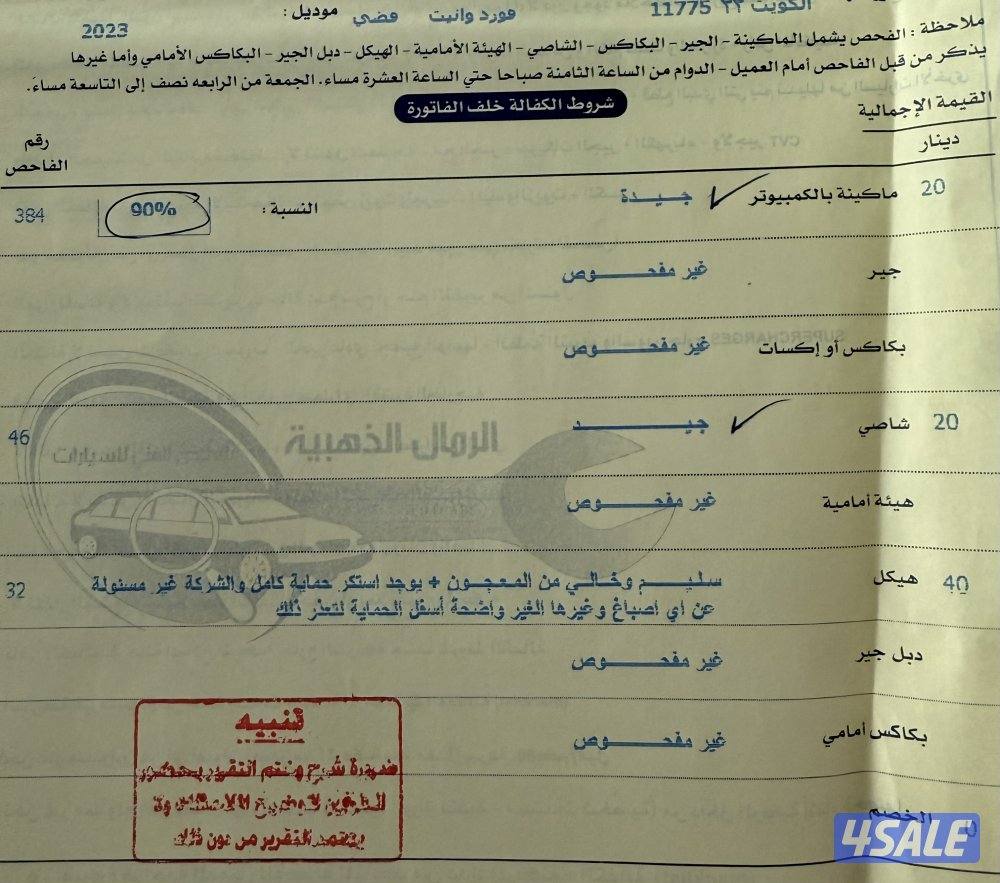 الكويت ٢٢ 11775 فورد وانيت فضي موديل : 2023
ملاحظة : الفحص يشمل الماكينة - الجير - البكاكس - الشاصي - الهيئة الأمامية - الهيكل - دبل الجير - البكاكس الأمامي وأما غيرها
يذكر من قبل الفاحص أمام العميل - الدوام من الساعة الثامنة صباحا حتي الساعة العشرة مساء. الجمعة من الرابعه نصف إلى التاسعة مساءً.
شروط الكفالة خلف الفاتورة
القيمة الإجمالية
دينار
رقم الفاحص
20 ماكينة بالكمبيوتر جيدة النسبة : 90% 384
جير غير مفحوص
بكاكس أو إكسات غير مفحوص
20 شاصي جيد 46
الرمال الذهبية
هيئة أمامية غير مفحوص
40 هيكل سليم وخالي من المعجون + يوجد استكر حماية كامل والشركة غير مسئولة 32
عن اي اصباغ وغيرها الغير واضحة أسفل الحماية لتعذر ذلك
دبل جير غير مفحوص
بكاكس أمامي غير مفحوص
تنبيه
ضرورة شرح وختم التقرير بحضور
الطرفين
يعتمد التقرير من دون ذلك
الخصم
4SALE